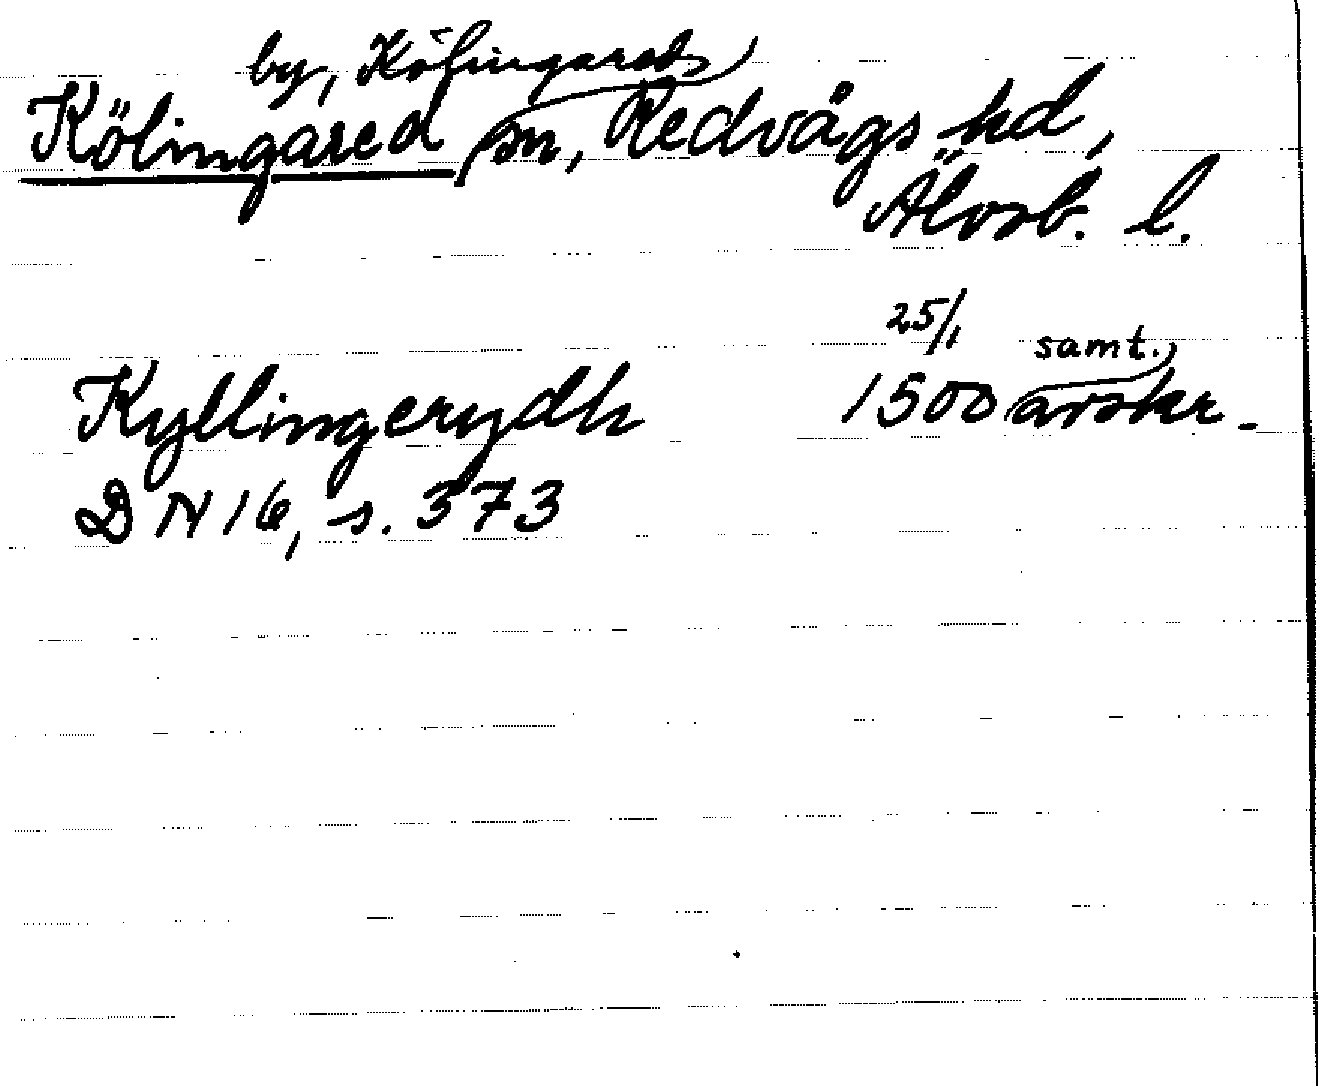 by, Kölingareds
Kölingared sn, Redvägs hd,
Älvsb. l.
25/1 samt.
Kyllingerydh 1500 avskr.
DN 16, s. 373